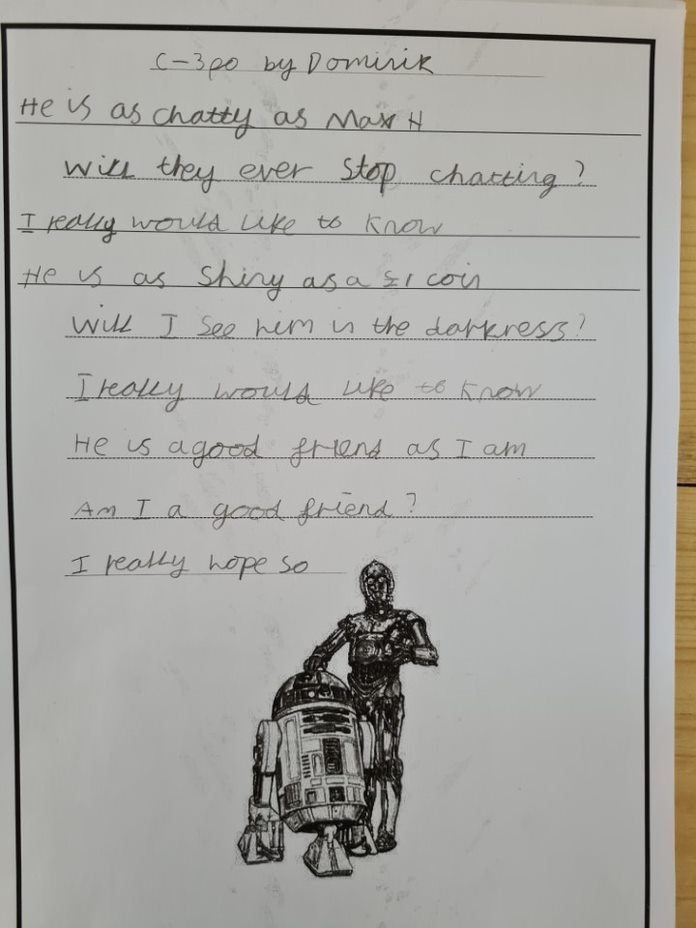 C-3po by Dominik
He is as chatty as Max H
Will they ever stop chatting?
I really would like to know
He is as Shiny as a £1 coin
Will I See him in the darkness?
I really would like to know
He is a good friend as I am
Am I a good friend?
I really hope so